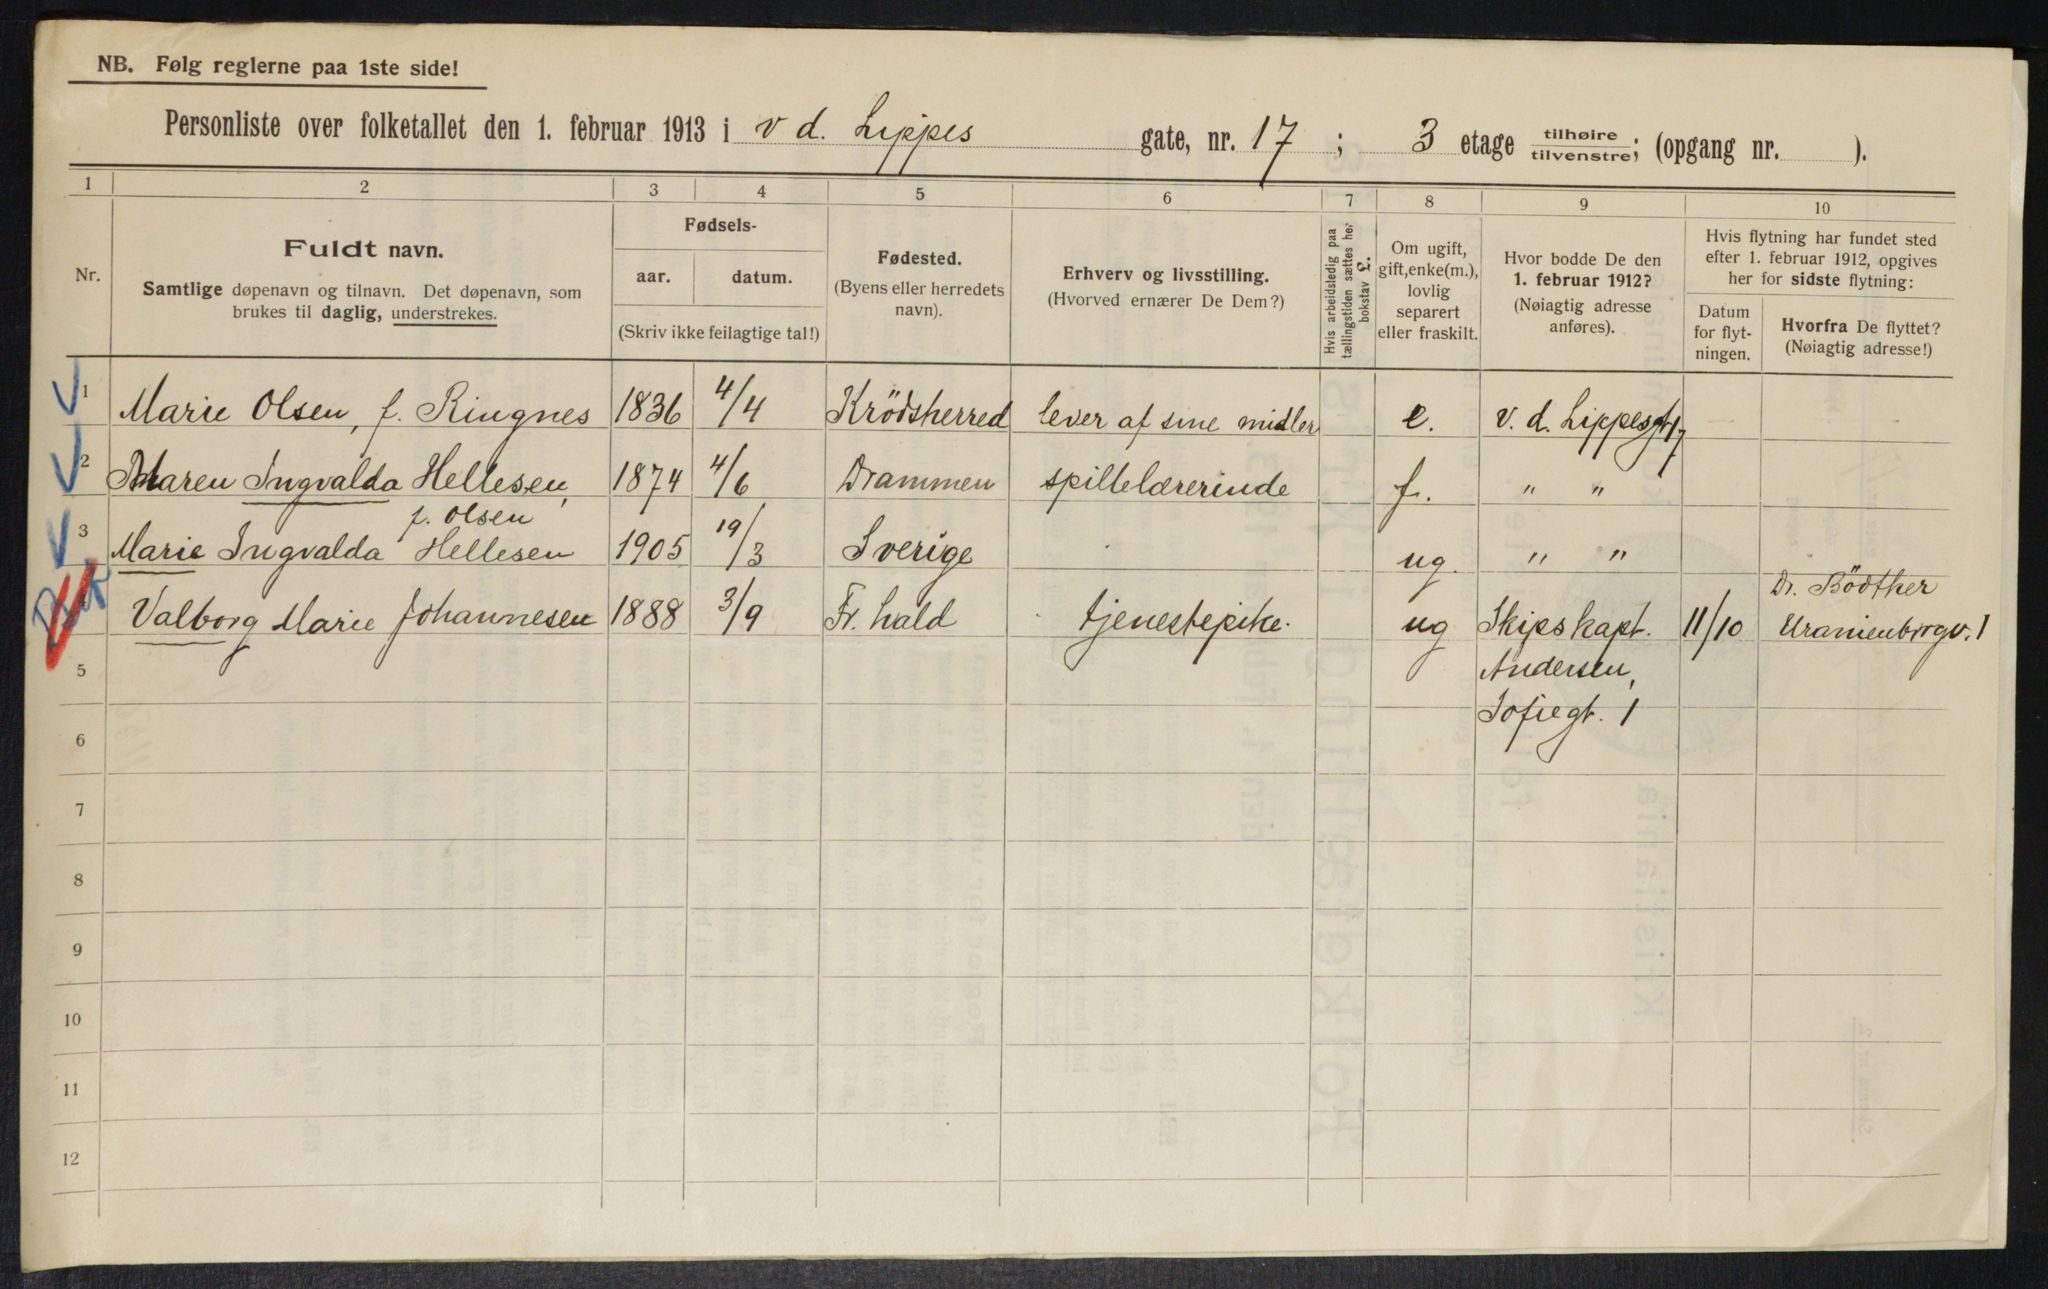 NB. Følg reglerne paa 1ste side!
Personliste over folketallet den 1. februar 1913 i v d. Lippes gate, nr. 17 ; 3 etage tilhøire / tilvenstre; (opgang nr. ).
1 2 3 4 5 6 7 8 9 10
Nr.
Fuldt navn.
Samtlige døpenavn og tilnavn. Det døpenavn, som
brukes til daglig, understrekes.
Fødsels-
aar. datum.
(Skriv ikke feilagtige tal!)
Fødested.
(Byens eller herredets
navn).
Erhverv og livsstilling.
(Hvorved ernærer De Dem?)
Hvis arbeidsledig paa
tællingstiden sættes her
bokstav L.
Om ugift,
gift, enke(m.),
lovlig
separert
eller fraskilt.
Hvor bodde De den
1. februar 1912?
(Nøiagtig adresse
anføres).
Hvis flytning har fundet sted
efter 1. februar 1912, opgives
her for sidste flytning:
Datum
for flyt-
ningen.
Hvorfra De flyttet?
(Nøiagtig adresse!)
1 Marie Olsen, f. Ringnes 1836 4/4 Krödsherred lever af sine midler e. v. d. Lippesgt 17
2 Maren Ingvalda Hellesen, 1874 4/6 Drammen spillelærerinde f. " "
f. Olsen
3 Marie Ingvalda Hellesen 1905 19/3 Sverige ug. " "
Dr. Bödtker
Valborg Marie Johannesen 1888 3/9 Fr. hald tjenestepike. ug Skipskapt. 11/10 Uranienborgv. 1
5 Andersen,
Sofiegt. 1
6
7
8
9
10
11
12